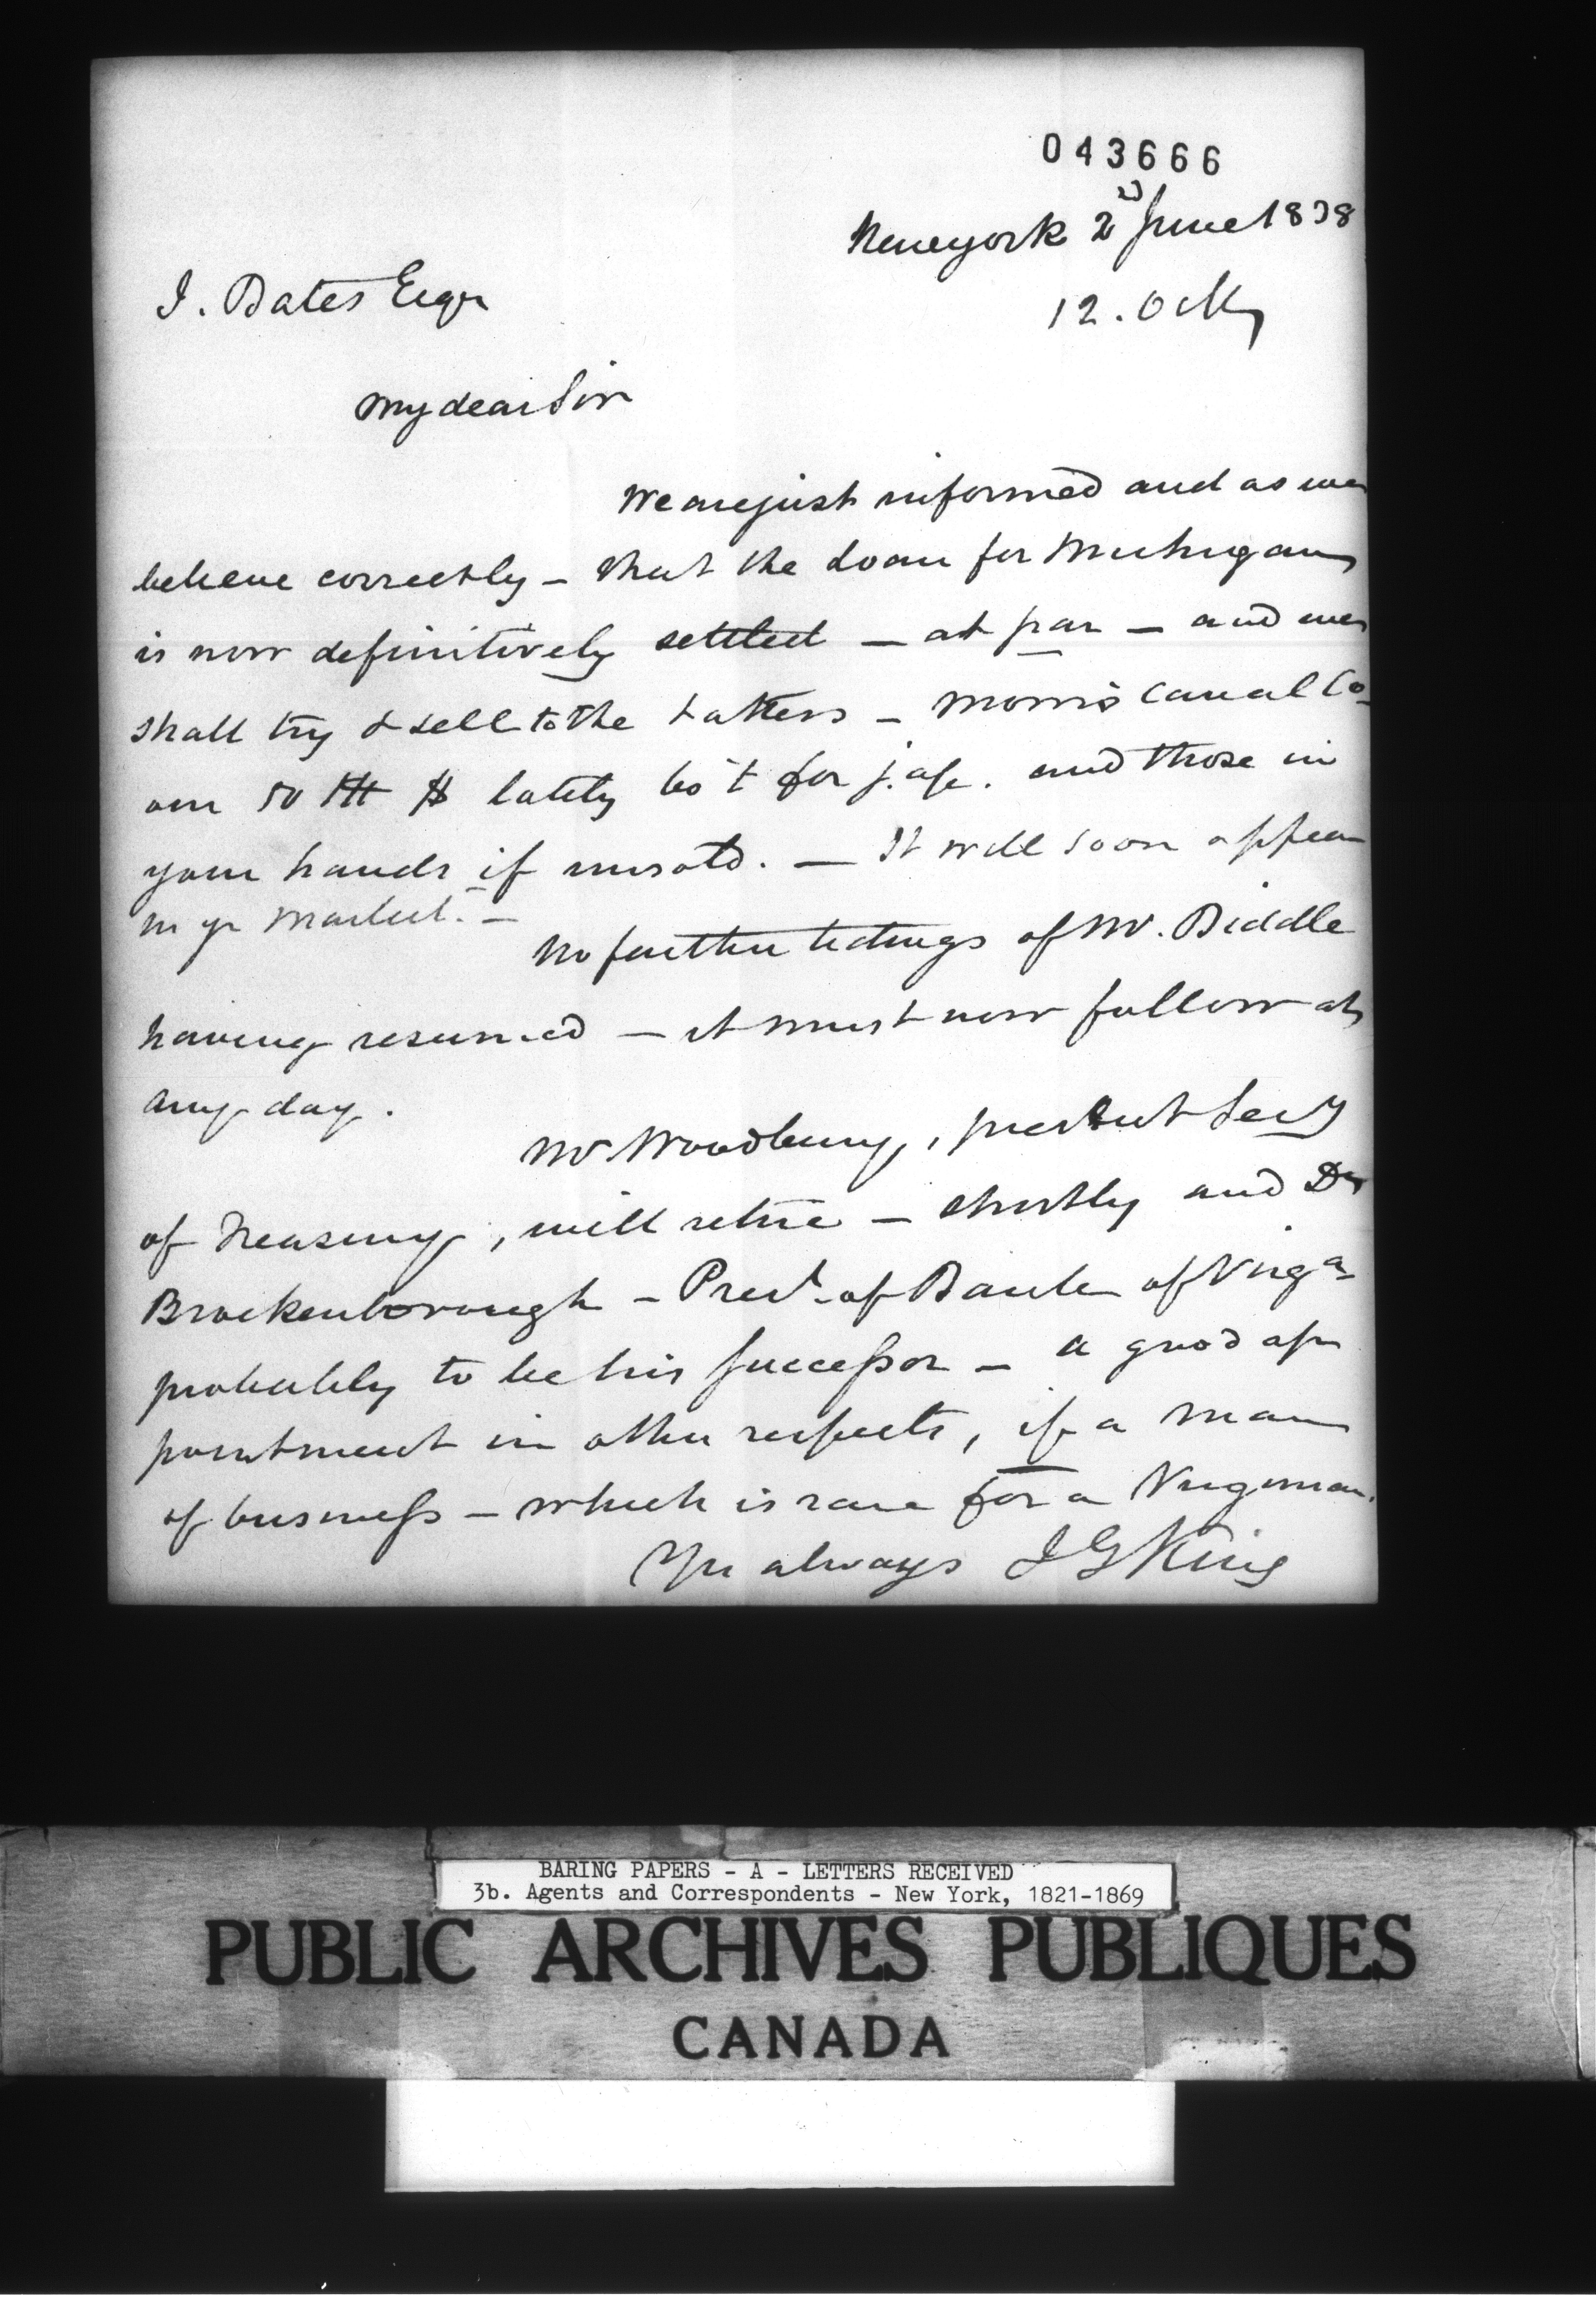 043666
Newyork 2d June 1838
12. OClk
J. Bates Esqr
My dear Sir
We are just informed and as we
believe correctly - that the Loan for Michigan
is now definitively settled - at par - and we
shall try & sell to the takers - Morris Canal Co
our 50 M $ lately bo't for j. a/c. and those in
your hands if unsold. - It will soon appear
in yr Market. -
No further tidings of Mr. Biddle
having resumed - it must now follow at
any day.
Mr Woodbury, present Secy
of Treasury, will retire - shortly and Dr
Brockenborough - Prest. of Bank of Virga
probably to be his successor - a good ap
pointment in other respects, if a man
of business - which is rare for a Virginian.
Yrs always J G King
BARING PAPERS - A - LETTERS RECEIVED
3b. Agents and Correspondents - New York, 1821-1869
PUBLIC ARCHIVES PUBLIQUES
CANADA